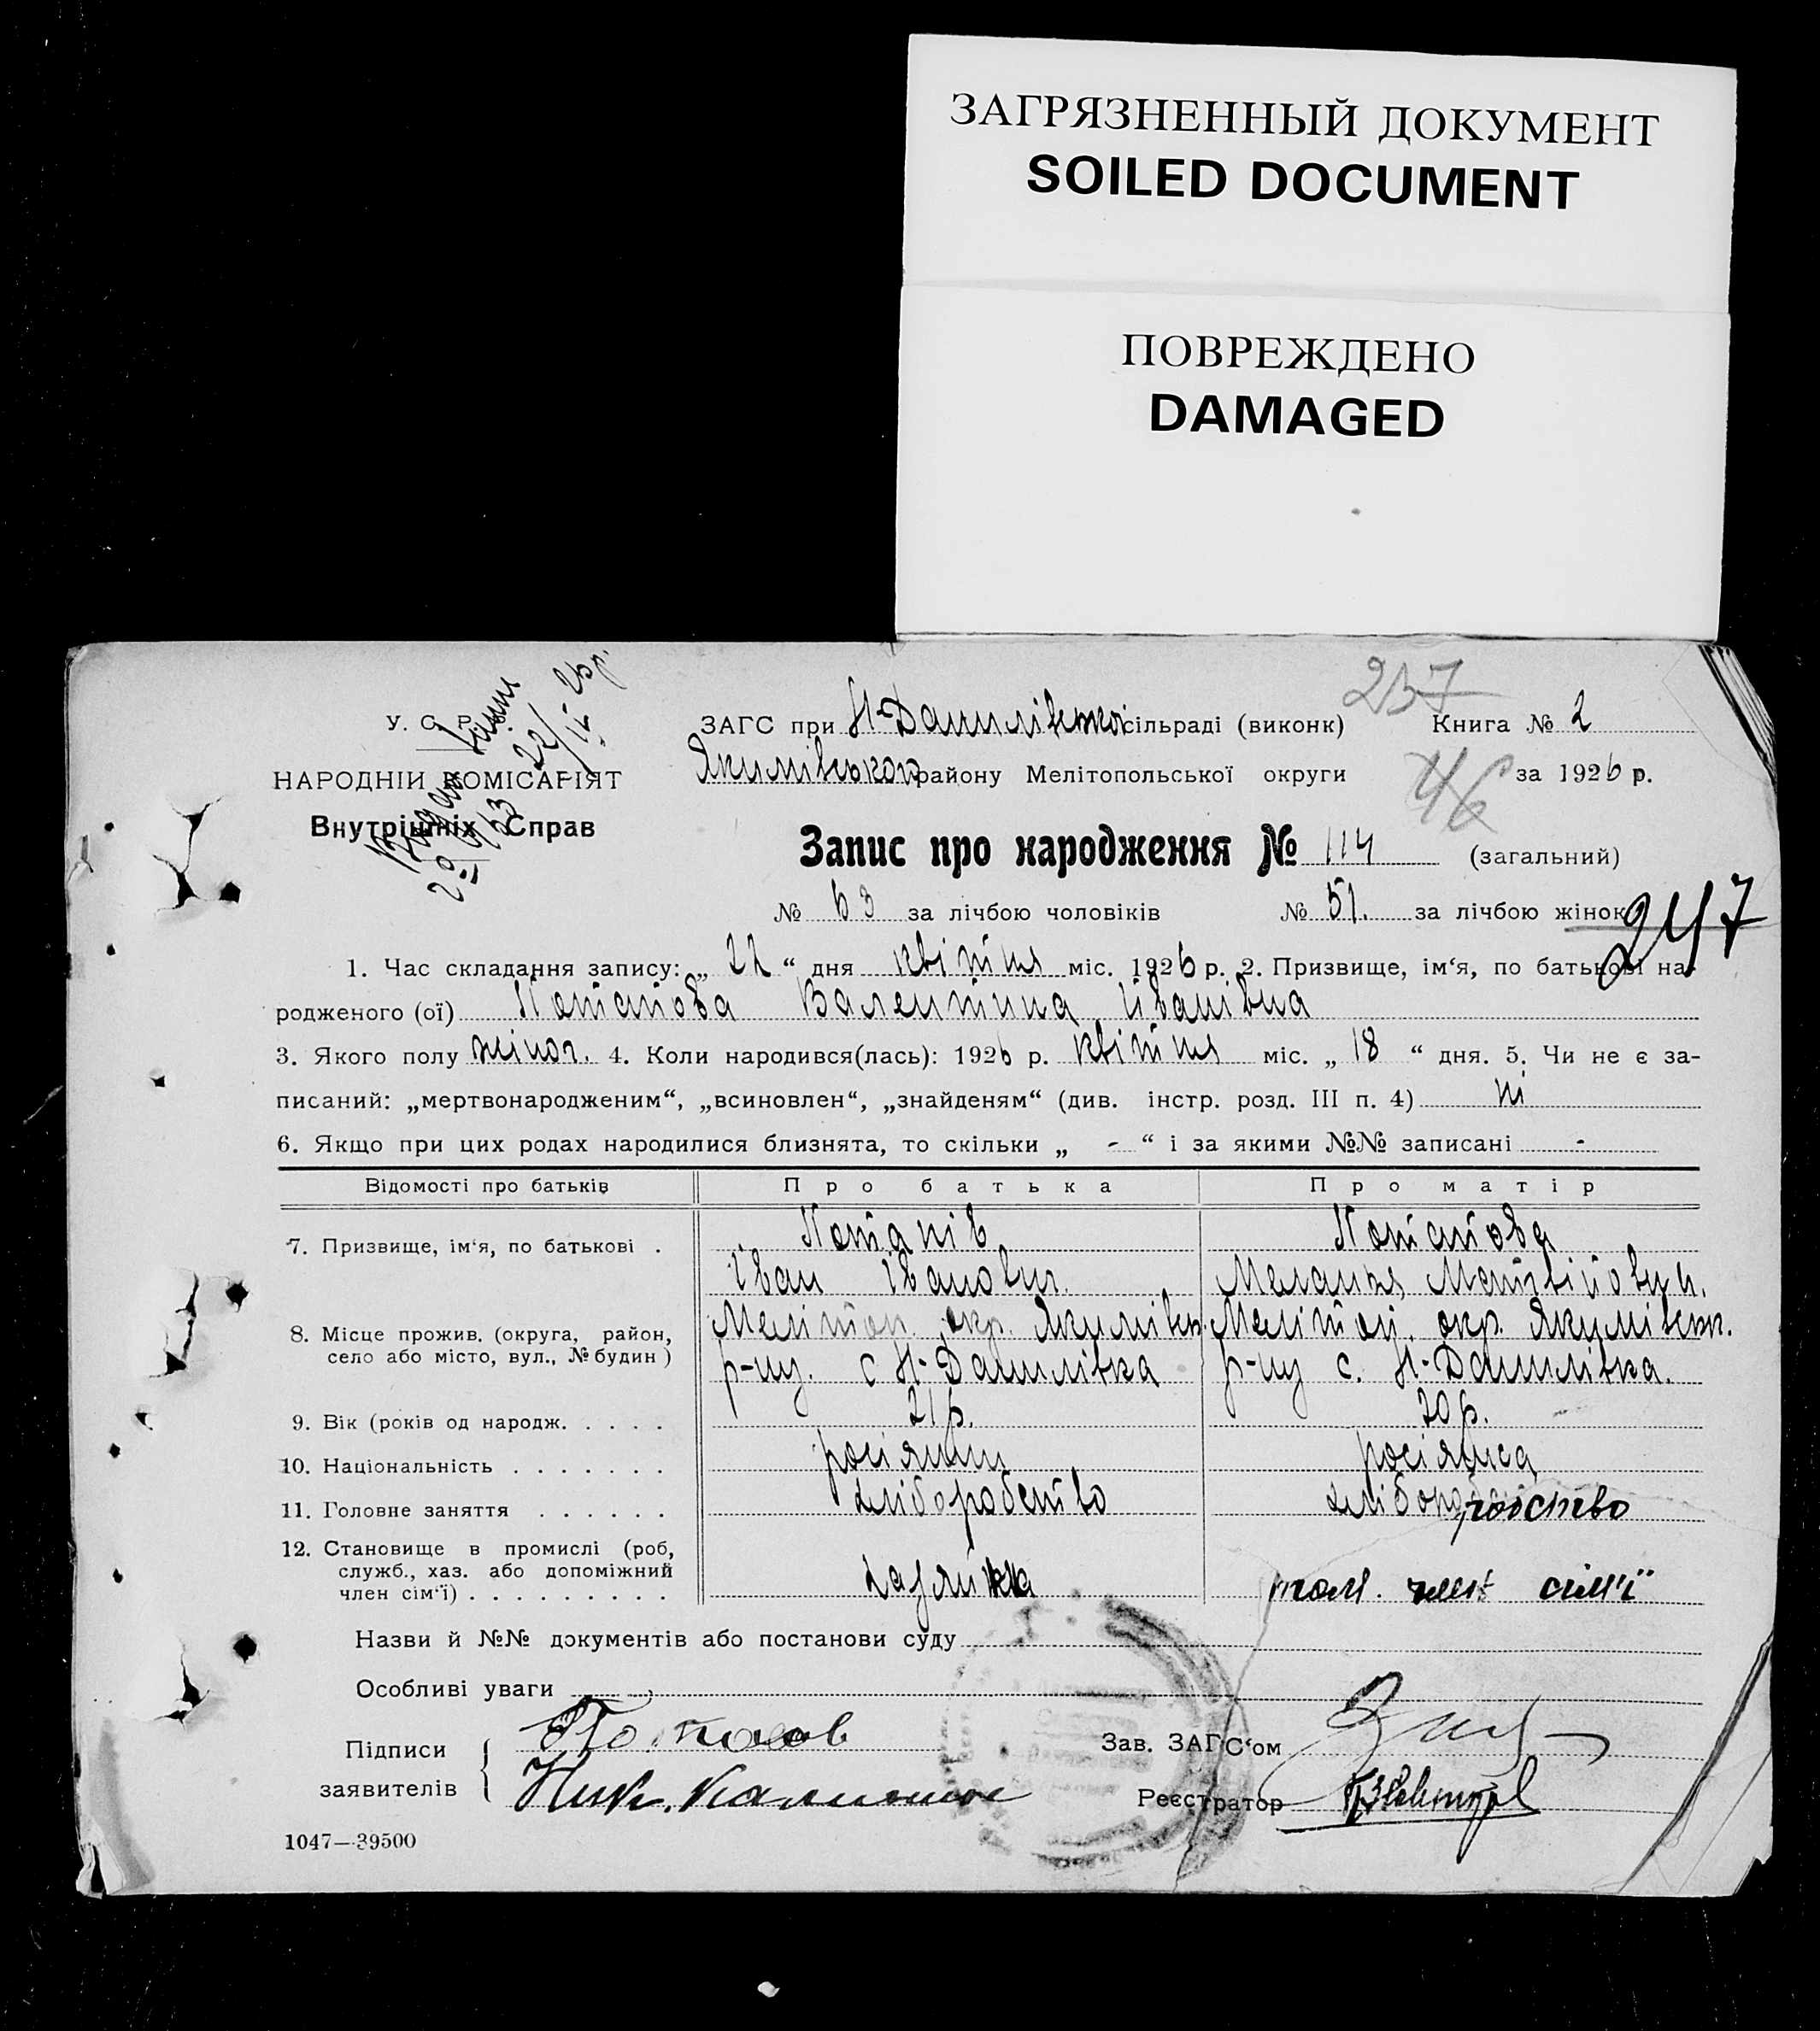 ЗАГРЯЗНЕННЫЙ ДОКУМЕНТ
SOILED DOCUMENT
ПОВРЕЖДЕНО
DAMAGED
237
У. С. Р. Р.
ЗАГС при Н-Данилівської сільраді (виконк) Книга № 2
НАРОДНІЙ КОМІСАРІЯТ
Якимівського району Мелітопольської округи 46 за 1926 р.
Внутрішніх Справ
Запис про народження № 114 (загальний)
№ 63 за лічбою чоловіків № 51. за лічбою жінок 247
1. Час складання запису: „ 22 “ дня квітня міс. 1926 р. 2. Призвище, ім‘я, по батькові на-
родженого (ої) Потапова Валентина Іванівна
3. Якого полу жіноч. 4. Коли народився(лась): 1926 р. квітня міс. „ 18 “ дня. 5. Чи не є за-
писаний: „мертвонародженим“, „всиновлен“, „знайденям“ (див. інстр. розд. III п. 4) ні
6. Якщо при цих родах народилися близнята, то скільки „ - “ і за якими №№ записані -
Відомості про батьків Про батька Про матір
7. Призвище, ім‘я, по батькові . Потапів Потапова
Іван Іванович. Меланья Матвійовн.
8. Місце прожив. (округа, район, Мелітоп. окр. Якимівськ. Мелітоп. окр. Якимівськ.
село або місто, вул., № будин) р-ну. с Н-Данилівка р-ну с. Н-Данилівка.
9. Вік (років од народж. . . . . 21 р. 20 р.
10. Національність . . . . . . . росіянин росіянка
11. Головне заняття . . . . . . хліборобство хліборобство
12. Становище в промислі (роб,
служб., хаз. або допоміжний
член сім‘ї) . . . . . . . . . член сім'ї
Назви й №№ документів або постанови суду
Особливі уваги
Підписи Потапов Зав. ЗАГС‘ом
заявителів Ник. Реєстратор
1047—39500